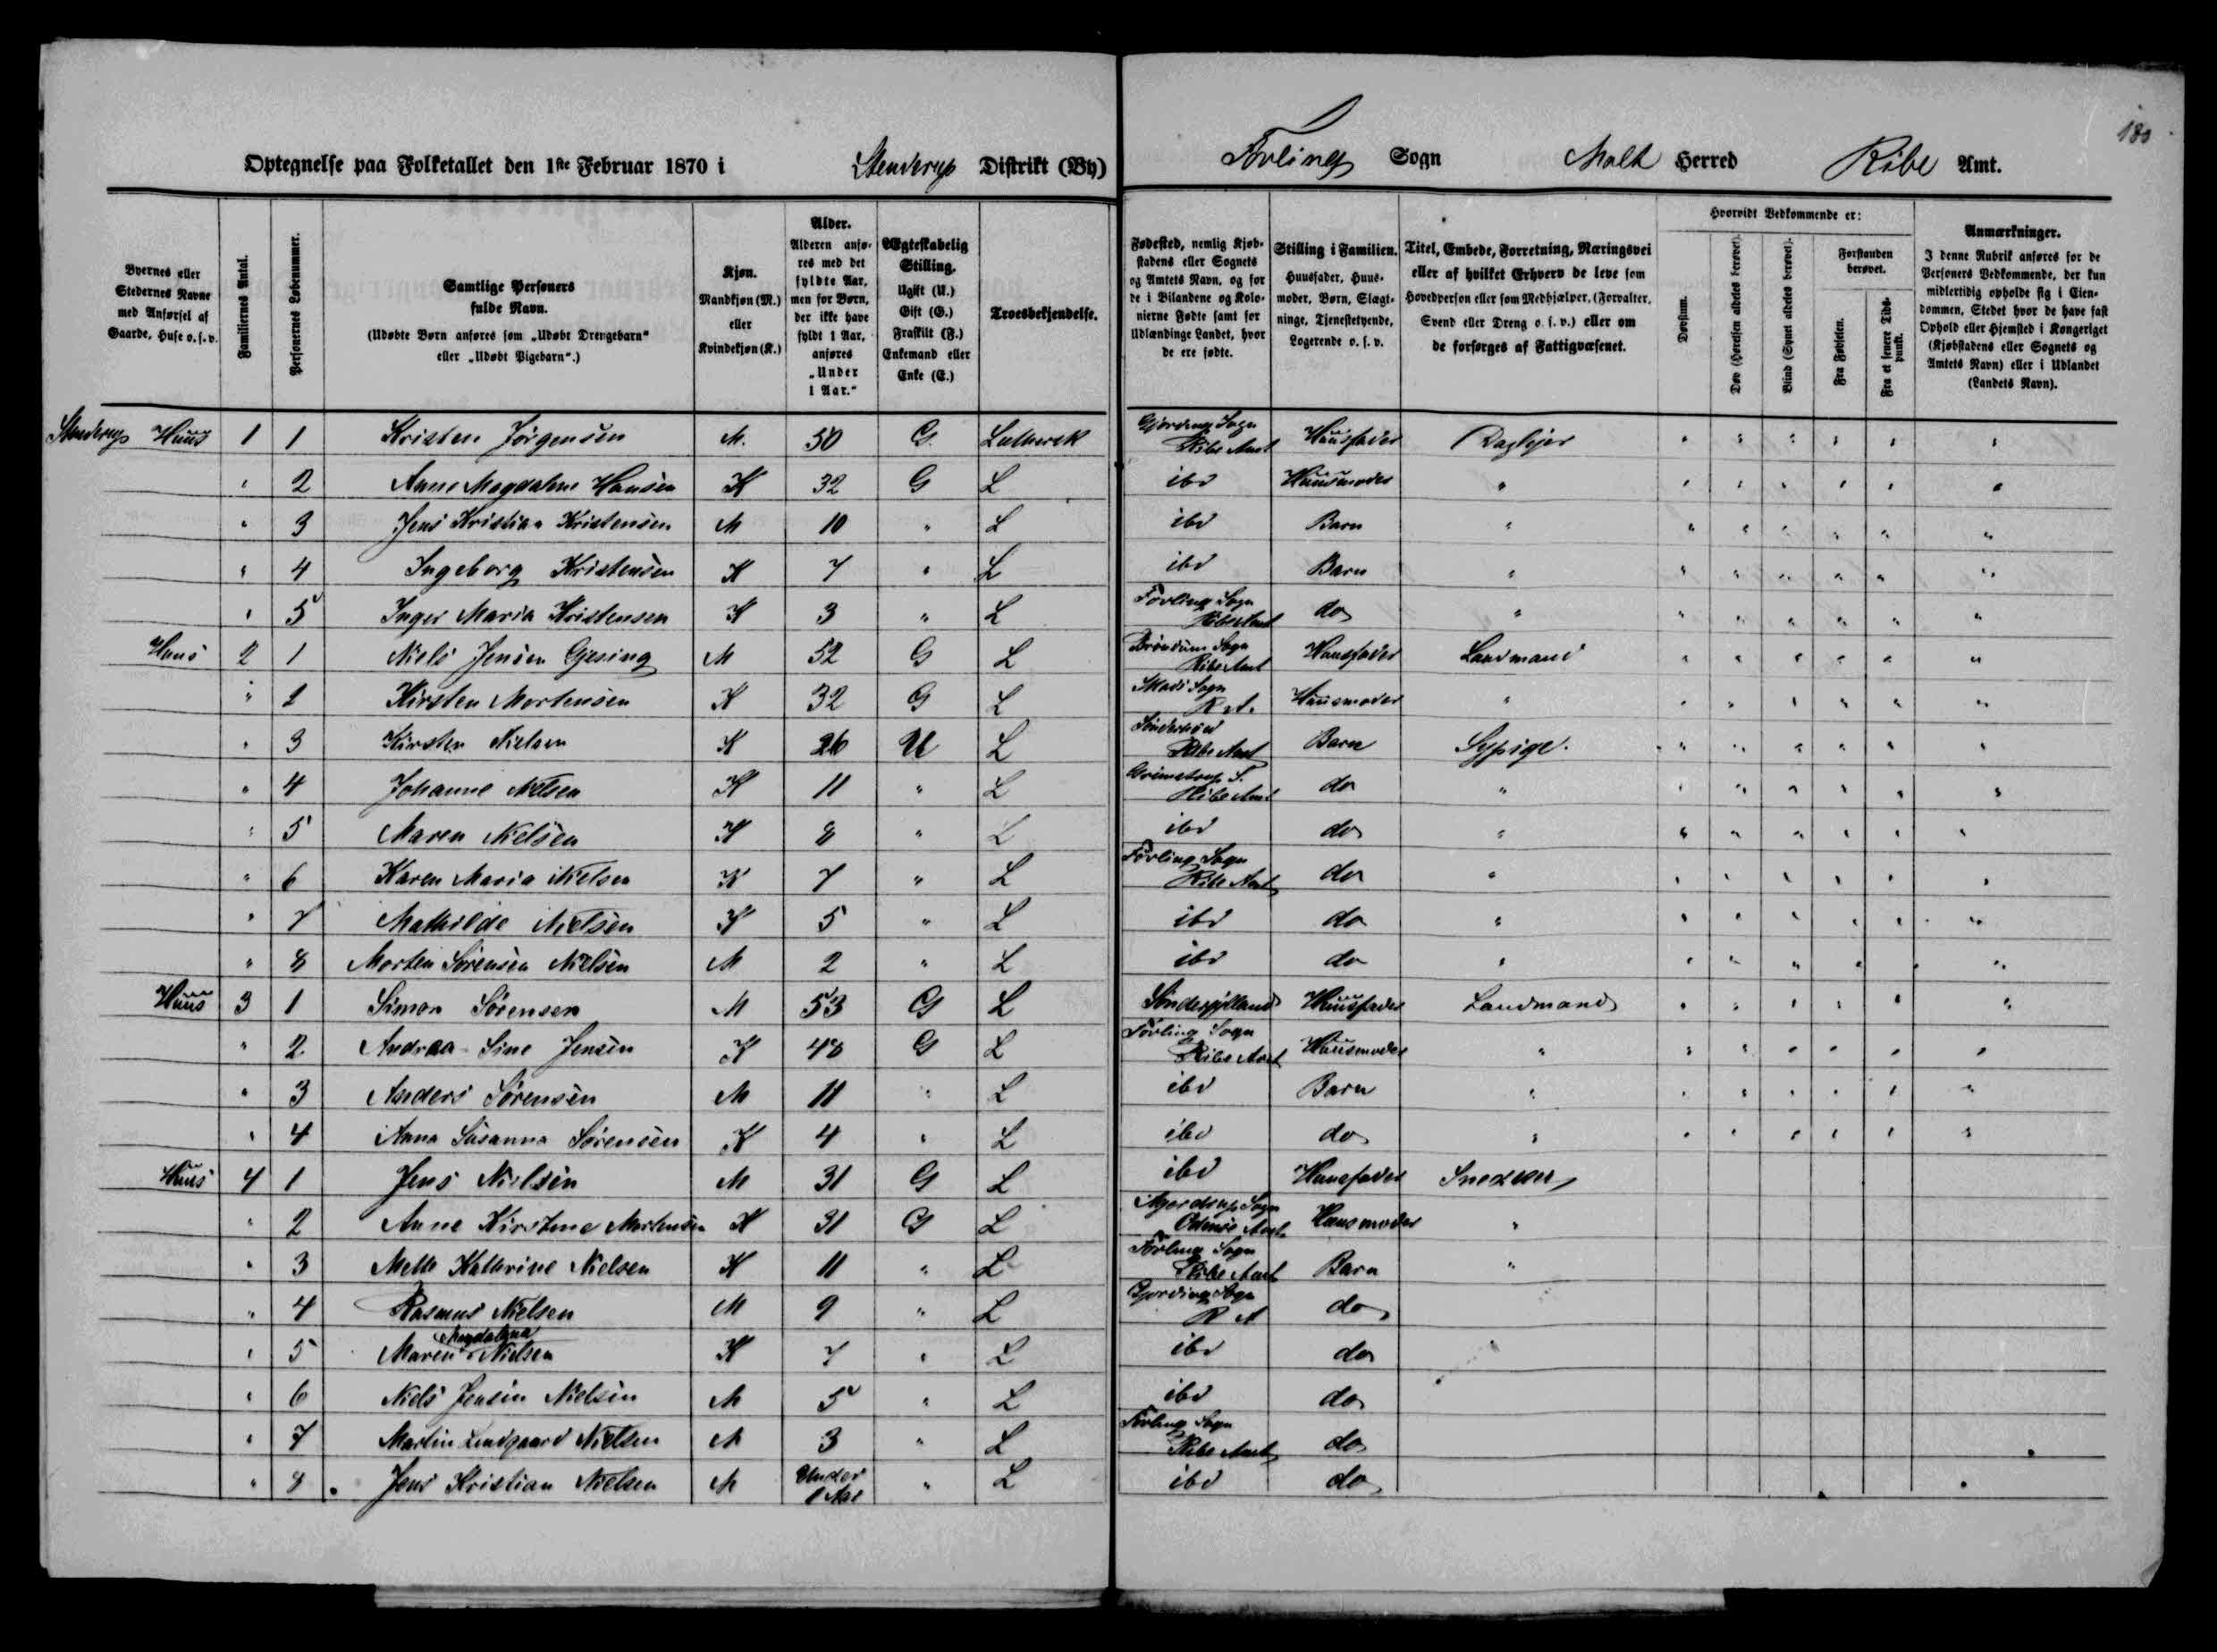 180
Optegnelse paa Folketallet den 1ste Februar 1870 i Stenderup Distrikt (By) Fovling Sogn Malt Herred Ribe Amt.
Byernes eller Stedernes Navne med Anførsel af Gaarde, Huse o.s.v.
Familiernes Antal.
Personernes Løbenummer.
Samtlige Personers fulde Navn.
(Udøbte Børn anføres som „Udøbt Drengebarn“ eller „Udøbt Pigebarn“.)
Kjøn. Mandkjøn (M.) eller Kvindekjøn (K.)
Alder. Alderen anføres med det fyldte Aar, men for Børn, der ikke have fyldt 1 Aar, anføres „Under 1 Aar.“
Ægteskabelig Stilling. Ugift (U.) Gift (G.) Fraskilt (F.) Enkemand eller Enke (E.)
Troesbekjendelse.
Fødested, nemlig Kjøbstadens eller Sognets og Amtets Navn, og for de i Bilandene og Kolonierne Fødte samt for Udlændinge Landet, hvor de ere fødte.
Stilling i Familien. Huusfader, Huusmoder, Børn, Slægtninge, Tjenestetyende, Logerende o.s.v.
Titel, Embede, Forretning, Næringsvei eller af hvilket Erhverv de leve som Hovedperson eller som Medhjælper, (Forvalter, Svend eller Dreng o.s.v.) eller om de forsørges af Fattigvæsenet.
Hvorvidt Vedkommende er:
Døvstum.
Døv (Hørelsen aldeles berøvet).
Blind (Synet aldeles berøvet).
Forstanden berøvet.
Fra Fødselen.
Fra et senere Tidspunkt.
Anmærkninger. I denne Rubrik anføres for de Personers Vedkommende, der kun midlertidig opholde sig i Eiendommen, Stedet hvor de have fast Ophold eller Hjemsted i Kongeriget (Kjøbstadens eller Sognets og Amtets Navn) eller i Udlandet (Landets Navn).
Stenderup Huus 1 1 Kristen Jörgensen M. 50 G. Luthersk Gjørding Sogn Ribe Amt Huusfader Daglejer
" 2 Anne Magdalene Hansen K 32 G L ibd Huusmoder "
" 3 Jens Kristian Kristensen M 10 " L ibd Barn "
" 4 Ingeborg Kristensen K 7 " L ibd Barn "
" 5 Inger Maria Kristensen K 3 " L Fovling Sogn Ribe Amt do "
Huus 2 1 Niels Jensen Gjesing M 52 G L Bröndum Sogn Ribe Amt Huusfader Landmand
" 2 Kirsten Mortensen K 32 G L Skads Sogn R.A. Huusmoder "
" 3 Kirsten Nielsen K 26 U L Ribe Amt Barn Sypige.
" 4 Johanne Nielsen K 11 " L Grimstrup S. Ribe Amt do "
" 5 Maren Nielsen K 8 " L ibd do "
" 6 Karen Maria Nielsen K 7 " L Fovling Sogn Ribe Amt do "
" 7 Mathilde Nielsen K 5 " L ibd do "
" 8 Morten Sörensen Nielsen M 2 " L ibd do "
Huus 3 1 Simon Sörensen M 53 G L Sönderjylland Huusfader Landmand
" 2 Andrea Sine Jensen K 48 G L Fovling Sogn Ribe Amt Huusmoder "
" 3 Anders Sörensen M 11 " L ibd Barn "
" 4 Anna Susanna Sörensen K 4 " L ibd do "
Huus 4 1 Jens Nielsen M 31 G L ibd Huusfader
" 2 Anne Kirstine Mortensen K 31 G L Sogn Odense Amt Huusmoder "
" 3 Mette Kathrine Nielsen K 11 " L Fovling Sogn Ribe Amt Barn "
" 4 Rasmus Nielsen M 9 " L Gjørding Sogn R A do
" 5 Maren Magdalena Nielsen K 7 " L ibd do
" 6 Niels Jensen Nielsen M 5 " L ibd do
" 7 Martin Lindgaard Nielsen M 3 " L Fovling Sogn Ribe Amt do
" 8 Jens Kristian Nielsen M Under 1 Aar " L ibd do